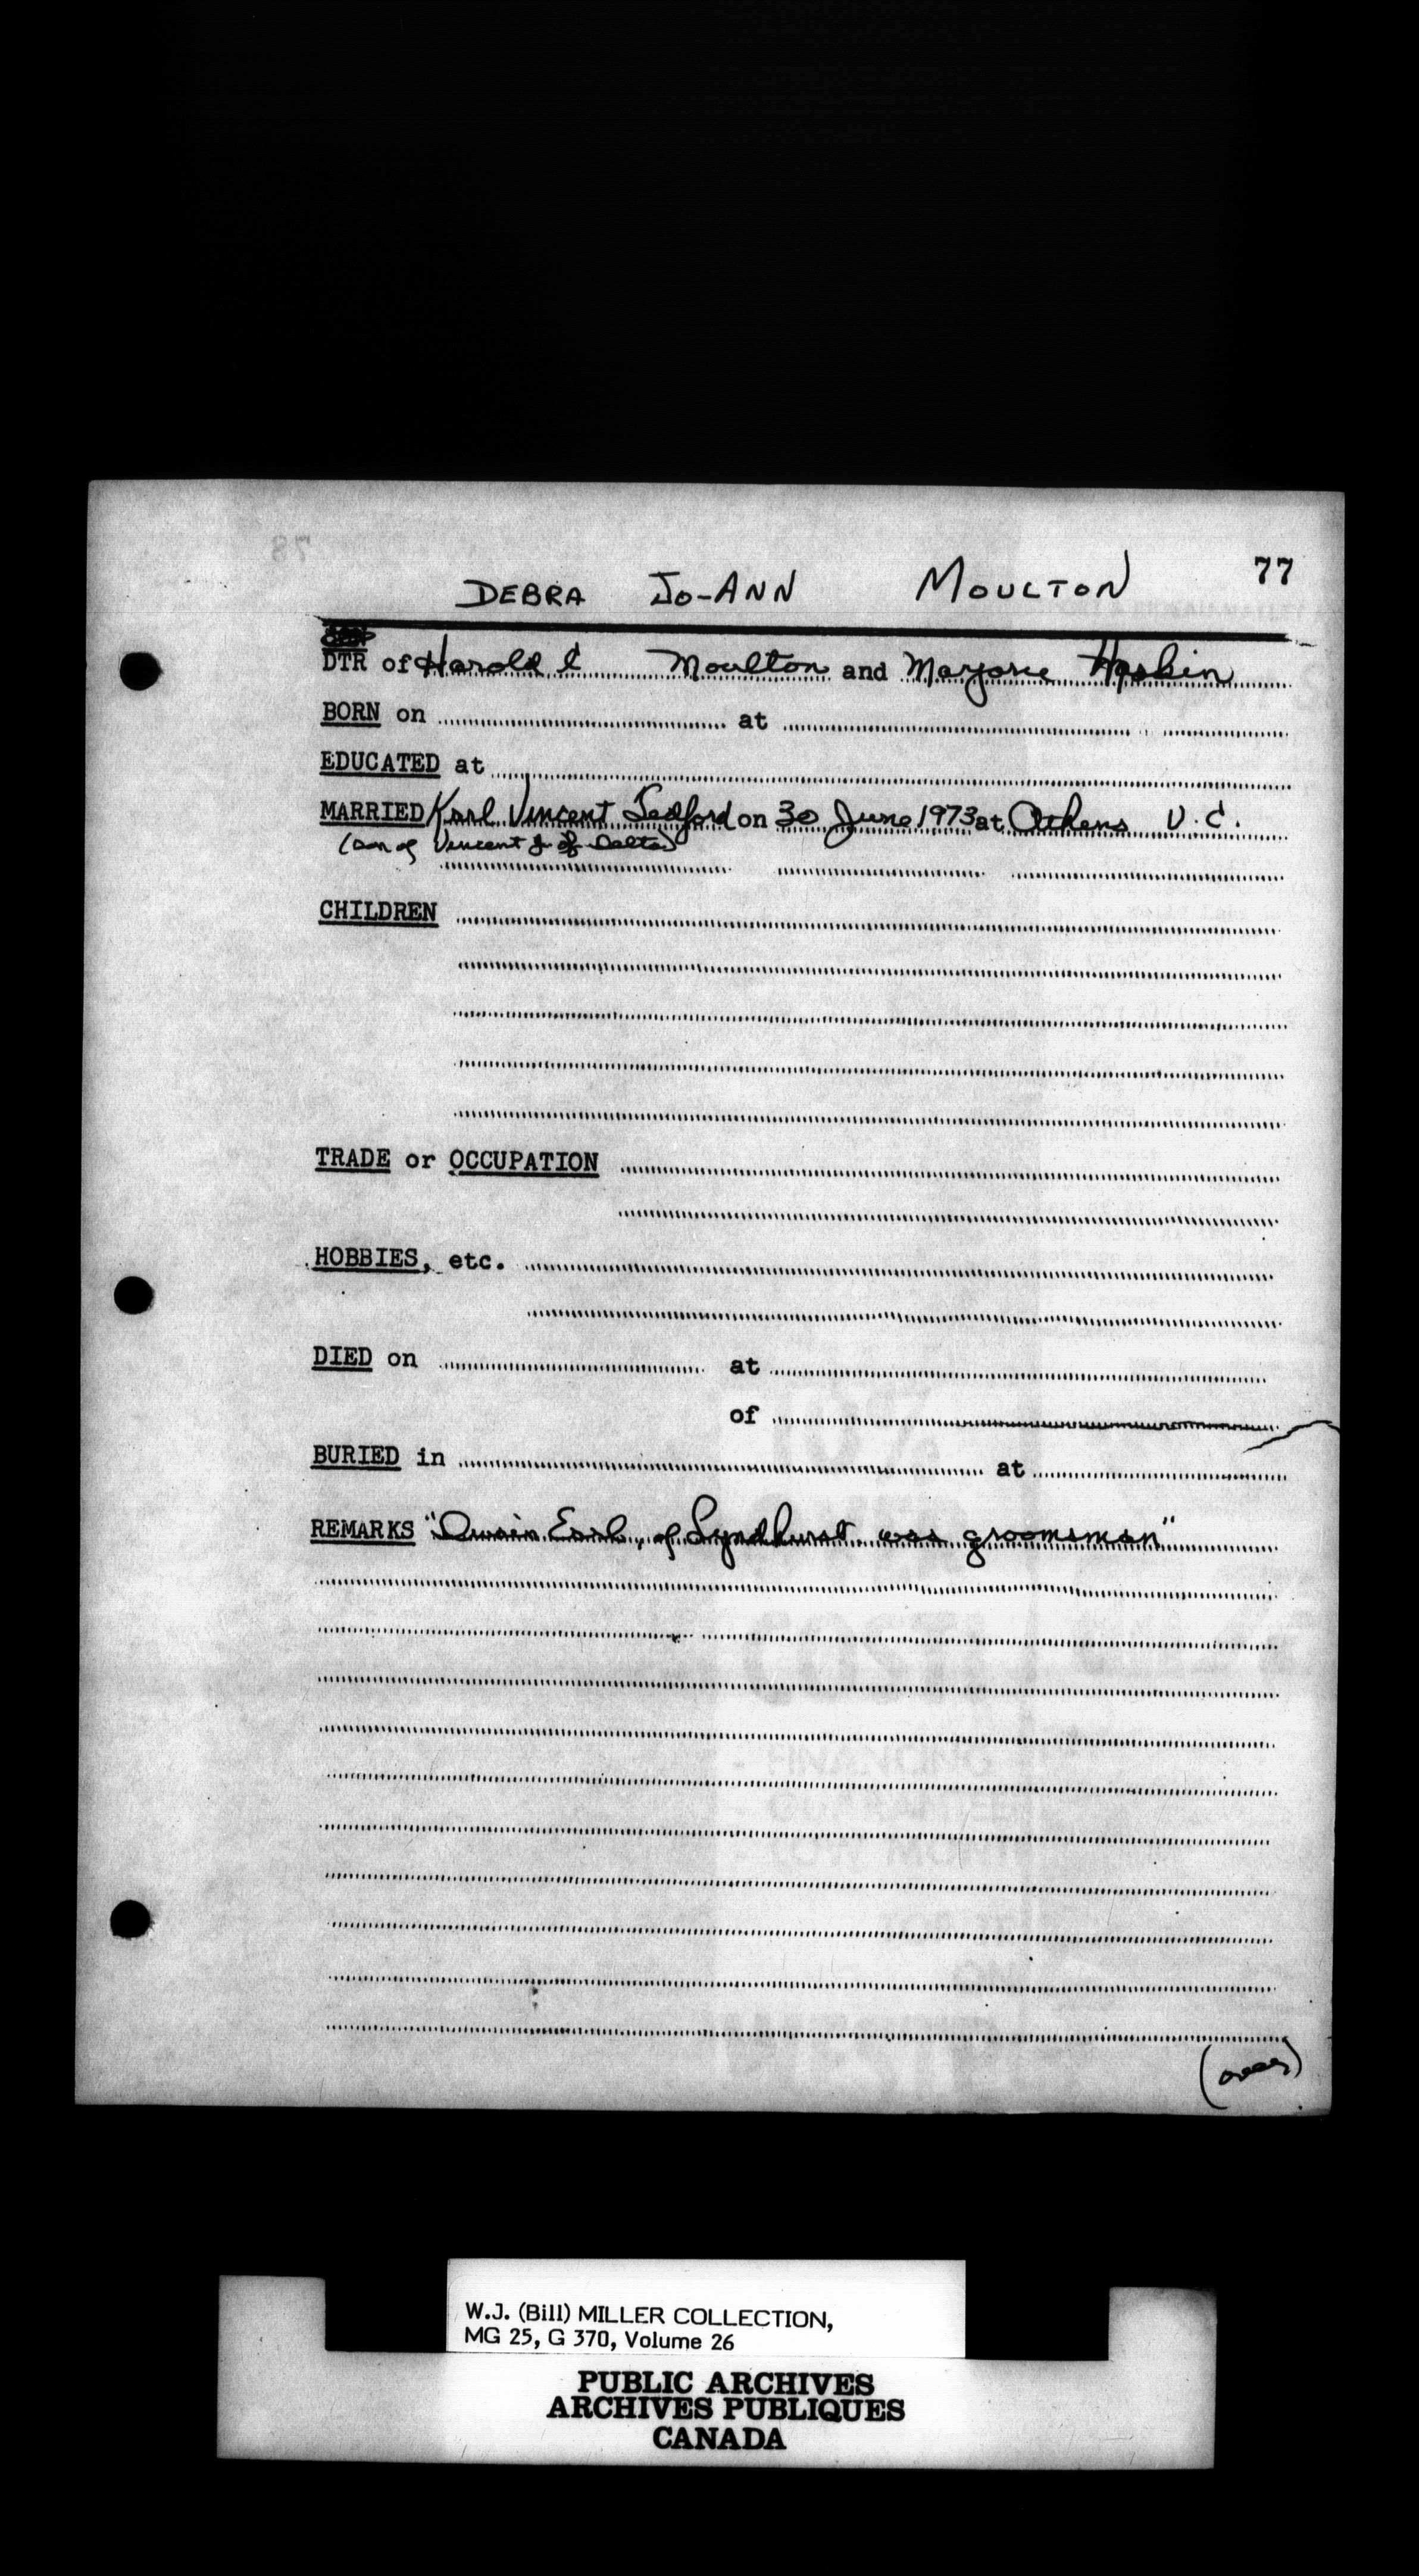 77
DEBRA JO-ANN MOULTON
DTR of Harold C Moulton and Marjorie Haskin
BORN on at
EDUCATED at
MARRIED Karl Vincent Tedford on 30 June 1973 at Athens U.C.
(son of Vincent J. of Delta)
CHILDREN
TRADE or OCCUPATION
HOBBIES, etc.
DIED on at
of
BURIED in at
REMARKS "Dwain Earl, of Lyndhurst was groomsman"
(over)
W.J. (Bill) MILLER COLLECTION,
MG 25, G 370, Volume 26
PUBLIC ARCHIVES
ARCHIVES PUBLIQUES
CANADA